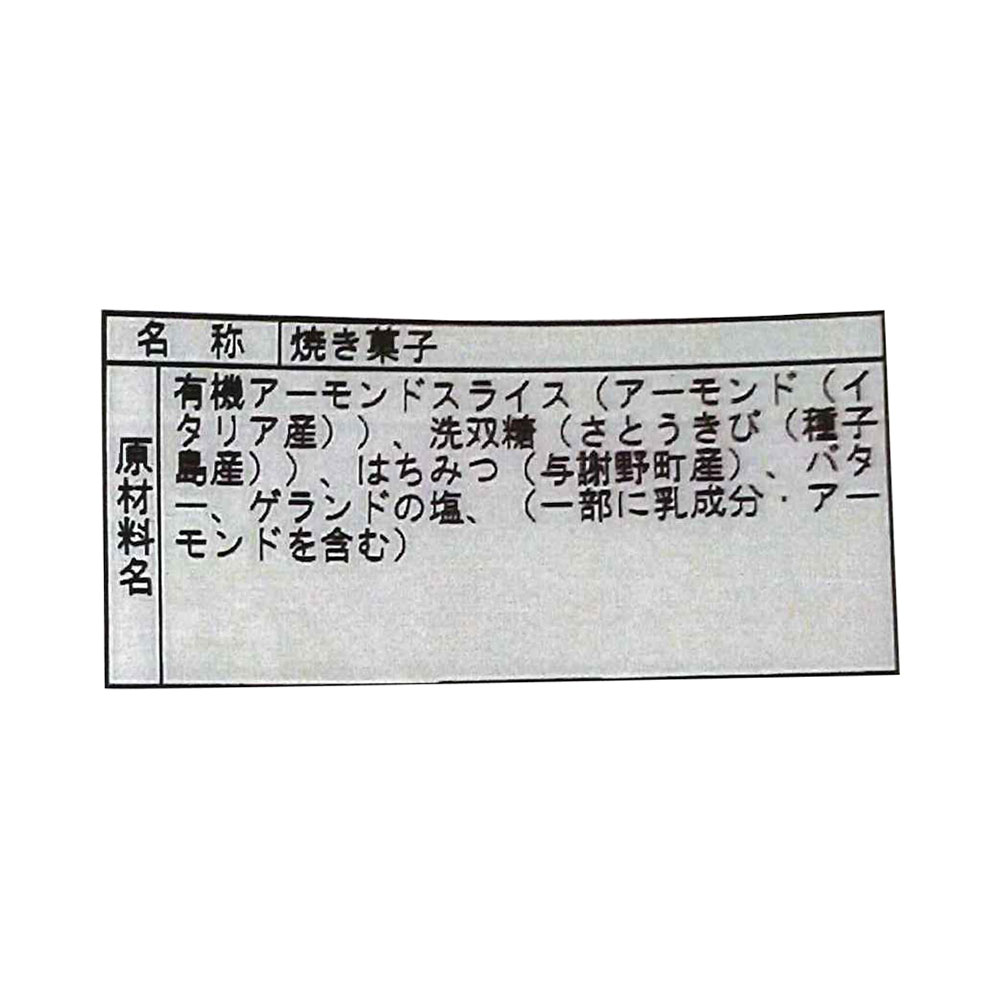 名 称 焼き菓子
原材料名
有機アーモンドスライス（アーモンド（イ
タリア産））、洗双糖（さとうきび（種子
島産））、はちみつ（与謝野町産）、バタ
ー、ゲランドの塩、（一部に乳成分・アー
モンドを含む）